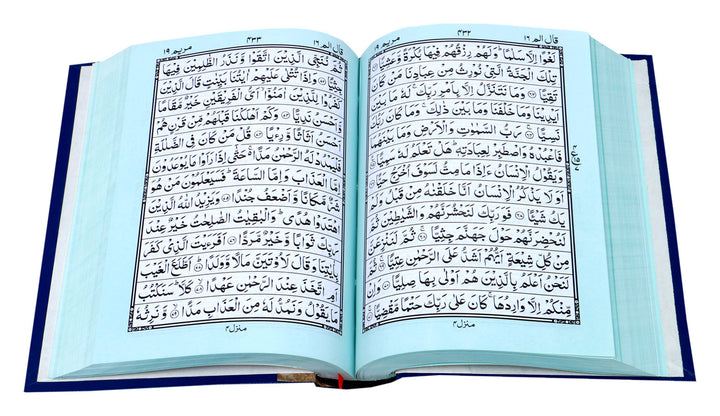 قال الم ١٦ ۴۳۲ مريم ١٩
لَغْوًا اِلَّا سَلٰمًا ؕ وَلَهُمْ رِزْقُهُمْ فِيْهَا بُكْرَةً وَّعَشِيًّا ﴿۶۲﴾
تِلْكَ الْجَنَّةُ الَّتِيْ نُوْرِثُ مِنْ عِبَادِنَا مَنْ كَانَ
تَقِيًّا ﴿۶۳﴾ وَمَا نَتَنَزَّلُ اِلَّا بِاَمْرِ رَبِّكَ ۚ لَهٗ مَا بَيْنَ
اَيْدِيْنَا وَمَا خَلْفَنَا وَمَا بَيْنَ ذٰلِكَ ۚ وَمَا كَانَ رَبُّكَ
نَسِيًّا ﴿۶۴﴾ رَبُّ السَّمٰوٰتِ وَالْاَرْضِ وَمَا بَيْنَهُمَا
فَاعْبُدْهُ وَاصْطَبِرْ لِعِبَادَتِهٖ ؕ هَلْ تَعْلَمُ لَهٗ سَمِيًّا ﴿۶۵﴾
وَيَقُوْلُ الْاِنْسَانُ ءَاِذَا مَا مِتُّ لَسَوْفَ اُخْرَجُ حَيًّا ﴿۶۶﴾
اَوَلَا يَذْكُرُ الْاِنْسَانُ اَنَّا خَلَقْنٰهُ مِنْ قَبْلُ وَلَمْ
يَكُ شَيْئًا ﴿۶۷﴾ فَوَرَبِّكَ لَنَحْشُرَنَّهُمْ وَالشَّيٰطِيْنَ ثُمَّ
لَنُحْضِرَنَّهُمْ حَوْلَ جَهَنَّمَ جِثِيًّا ﴿۶۸﴾ ثُمَّ لَنَنْزِعَنَّ
مِنْ كُلِّ شِيْعَةٍ اَيُّهُمْ اَشَدُّ عَلَى الرَّحْمٰنِ عِتِيًّا ﴿۶۹﴾ ثُمَّ
لَنَحْنُ اَعْلَمُ بِالَّذِيْنَ هُمْ اَوْلٰى بِهَا صِلِيًّا ﴿۷۰﴾ وَاِنْ
مِّنْكُمْ اِلَّا وَارِدُهَا ۚ كَانَ عَلٰى رَبِّكَ حَتْمًا مَّقْضِيًّا ﴿۷۱﴾
منزل ۴
قال الم ١٦ ۴۳۳ مريم ١٩
ثُمَّ نُنَجِّي الَّذِيْنَ اتَّقَوْا وَّنَذَرُ الظّٰلِمِيْنَ فِيْهَا
جِثِيًّا ﴿۷۲﴾ وَاِذَا تُتْلٰى عَلَيْهِمْ اٰيٰتُنَا بَيِّنٰتٍ قَالَ الَّذِيْنَ
كَفَرُوْا لِلَّذِيْنَ اٰمَنُوْۤا ۙ اَيُّ الْفَرِيْقَيْنِ خَيْرٌ مَّقَامًا
وَّاَحْسَنُ نَدِيًّا ﴿۷۳﴾ وَكَمْ اَهْلَكْنَا قَبْلَهُمْ مِّنْ قَرْنٍ هُمْ
اَحْسَنُ اَثَاثًا وَّرِءْيًا ﴿۷۴﴾ قُلْ مَنْ كَانَ فِي الضَّلٰلَةِ
فَلْيَمْدُدْ لَهُ الرَّحْمٰنُ مَدًّا ۚ حَتّٰۤى اِذَا رَاَوْا مَا يُوْعَدُوْنَ
اِمَّا الْعَذَابَ وَاِمَّا السَّاعَةَ ؕ فَسَيَعْلَمُوْنَ مَنْ هُوَ
شَرٌّ مَّكَانًا وَّاَضْعَفُ جُنْدًا ﴿۷۵﴾ وَيَزِيْدُ اللّٰهُ الَّذِيْنَ
اهْتَدَوْا هُدًى ؕ وَالْبٰقِيٰتُ الصّٰلِحٰتُ خَيْرٌ عِنْدَ
رَبِّكَ ثَوَابًا وَّخَيْرٌ مَّرَدًّا ﴿۷۶﴾ اَفَرَءَيْتَ الَّذِيْ كَفَرَ
بِاٰيٰتِنَا وَقَالَ لَاُوْتَيَنَّ مَالًا وَّوَلَدًا ﴿۷۷﴾ اَطَّلَعَ الْغَيْبَ
اَمِ اتَّخَذَ عِنْدَ الرَّحْمٰنِ عَهْدًا ﴿۷۸﴾ كَلَّا ؕ سَنَكْتُبُ
مَا يَقُوْلُ وَنَمُدُّ لَهٗ مِنَ الْعَذَابِ مَدًّا ﴿۷۹﴾ وَّنَرِثُهٗ
منزل ۴